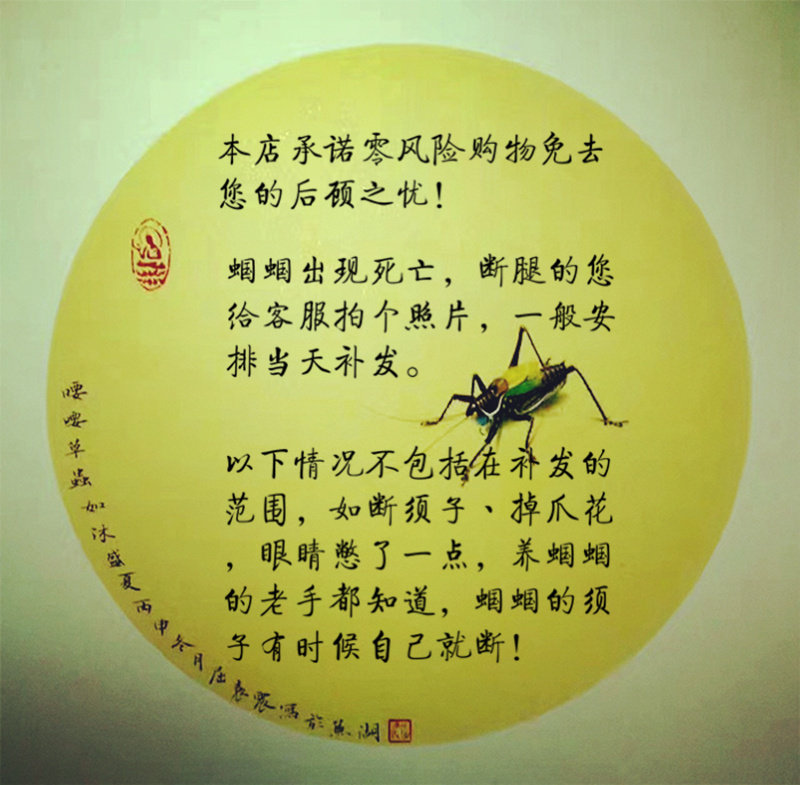 本店承诺零风险购物免去
您的后顾之忧！
蝈蝈出现死亡，断腿的您
给客服拍个照片，一般安
排当天补发。
以下情况不包括在补发的
范围，如断须子、掉爪花
，眼睛憋了一点，养蝈蝈
的老手都知道，蝈蝈的须
子有时候自己就断！
喓喓草蟲如沐盛夏丙申冬月